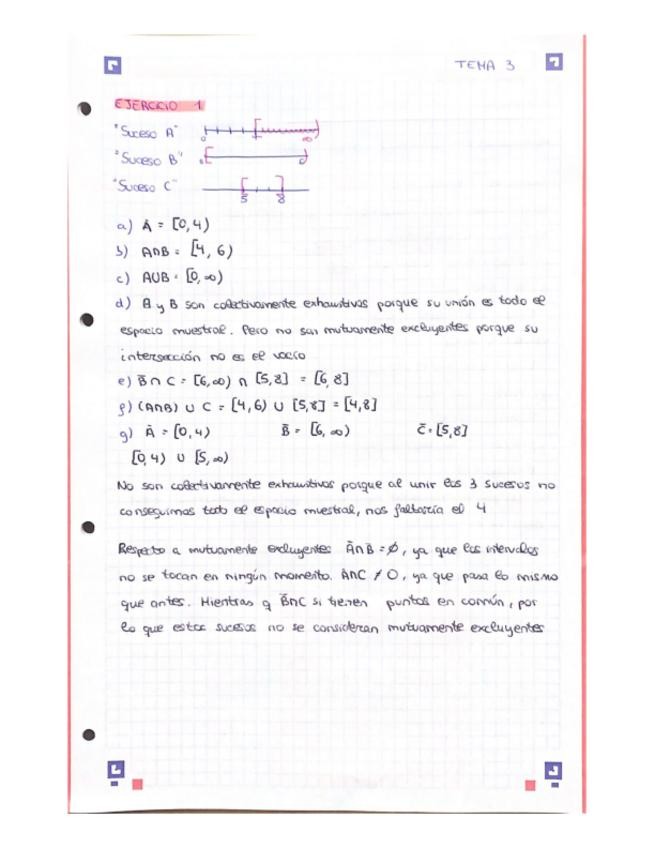 TEMA 3
EJERCICIO 1
"Suceso A" 0 ∞
"Suceso B"
"Suceso C"
5 8
a) Ā = [0,4)
b) A∩B = [4, 6)
c) A∪B = [0, ∞)
d) A y B son colectivamente exhaustivos porque su unión es todo el
espacio muestral. Pero no son mutuamente excluyentes porque su
intersección no es el vacío
e) B̄ ∩ C = [6,∞) ∩ [5,8] = [6,8]
f) (A∩B) ∪ C = [4,6) ∪ [5,8] = [4,8]
g) Ā = [0,4) B̄ = [6, ∞) C = [5,8]
[0,4) ∪ [5,∞)
No son colectivamente exhaustivos porque al unir los 3 sucesos no
conseguimos todo el espacio muestral, nos faltaría el 4
Respecto a mutuamente excluyentes Ā∩B̄ = ∅, ya que los intervalos
no se tocan en ningún momento. Ā∩C ≠ 0, ya que pasa lo mismo
que antes. Mientras q B̄∩C si tienen puntos en común, por
lo que estos sucesos no se consideran mutuamente excluyentes